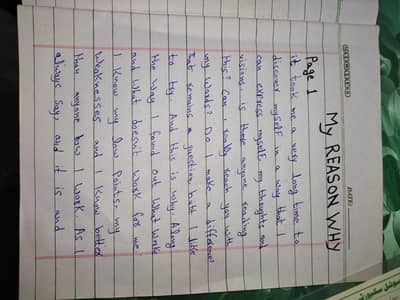 DATE:
MY REASON WHY
Page 1
it took me a very long time to
discover myself in a way that I
can express myself, my thoughts and
visions. is there anyone reading
this? Can I really reach you with
my words? Do I make a difference?
that remains a question that I like
to try. And this is why. Along
the way I found out what work
and what doesn't work for me.
I know my low points, my
weaknesses and I know better
than anyone how I work. As I
always say, and it is and